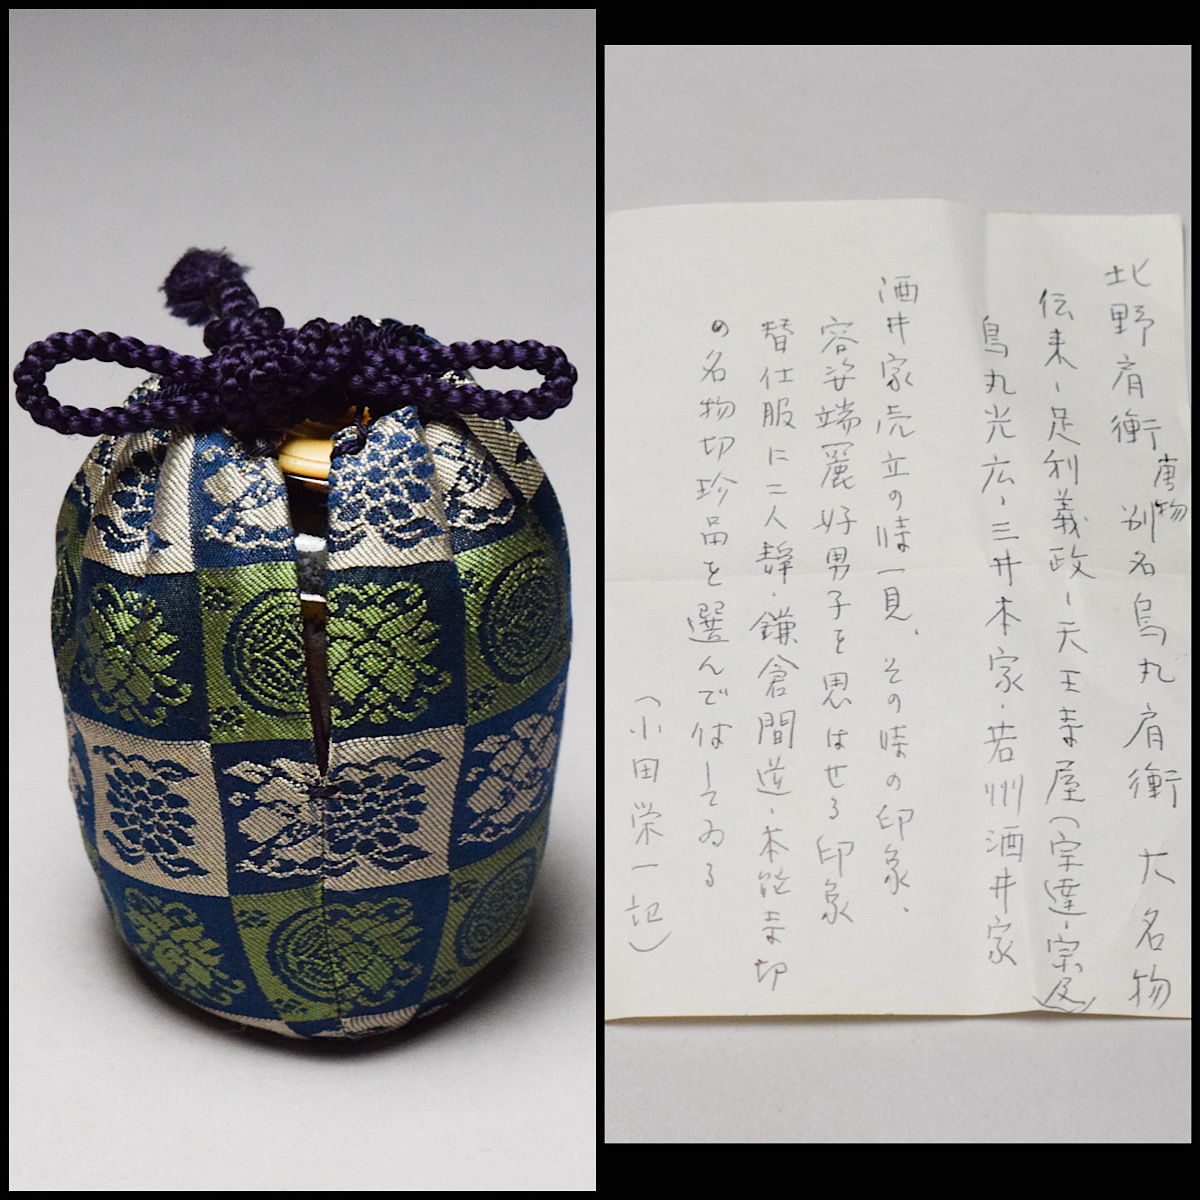 北野肩衝 唐物 別名烏丸肩衝 大名物
伝来ー足利義政ー天王寺屋(宗達・宗及)
烏丸光広・三井本家・若州酒井家
酒井家売立の時一見、その時の印象、
容姿端麗好男子を思はせる印象
替仕服に二人静・鎌倉間道・本能寺切
の名物切珍品を選んで付してゐる
(小田栄一記)